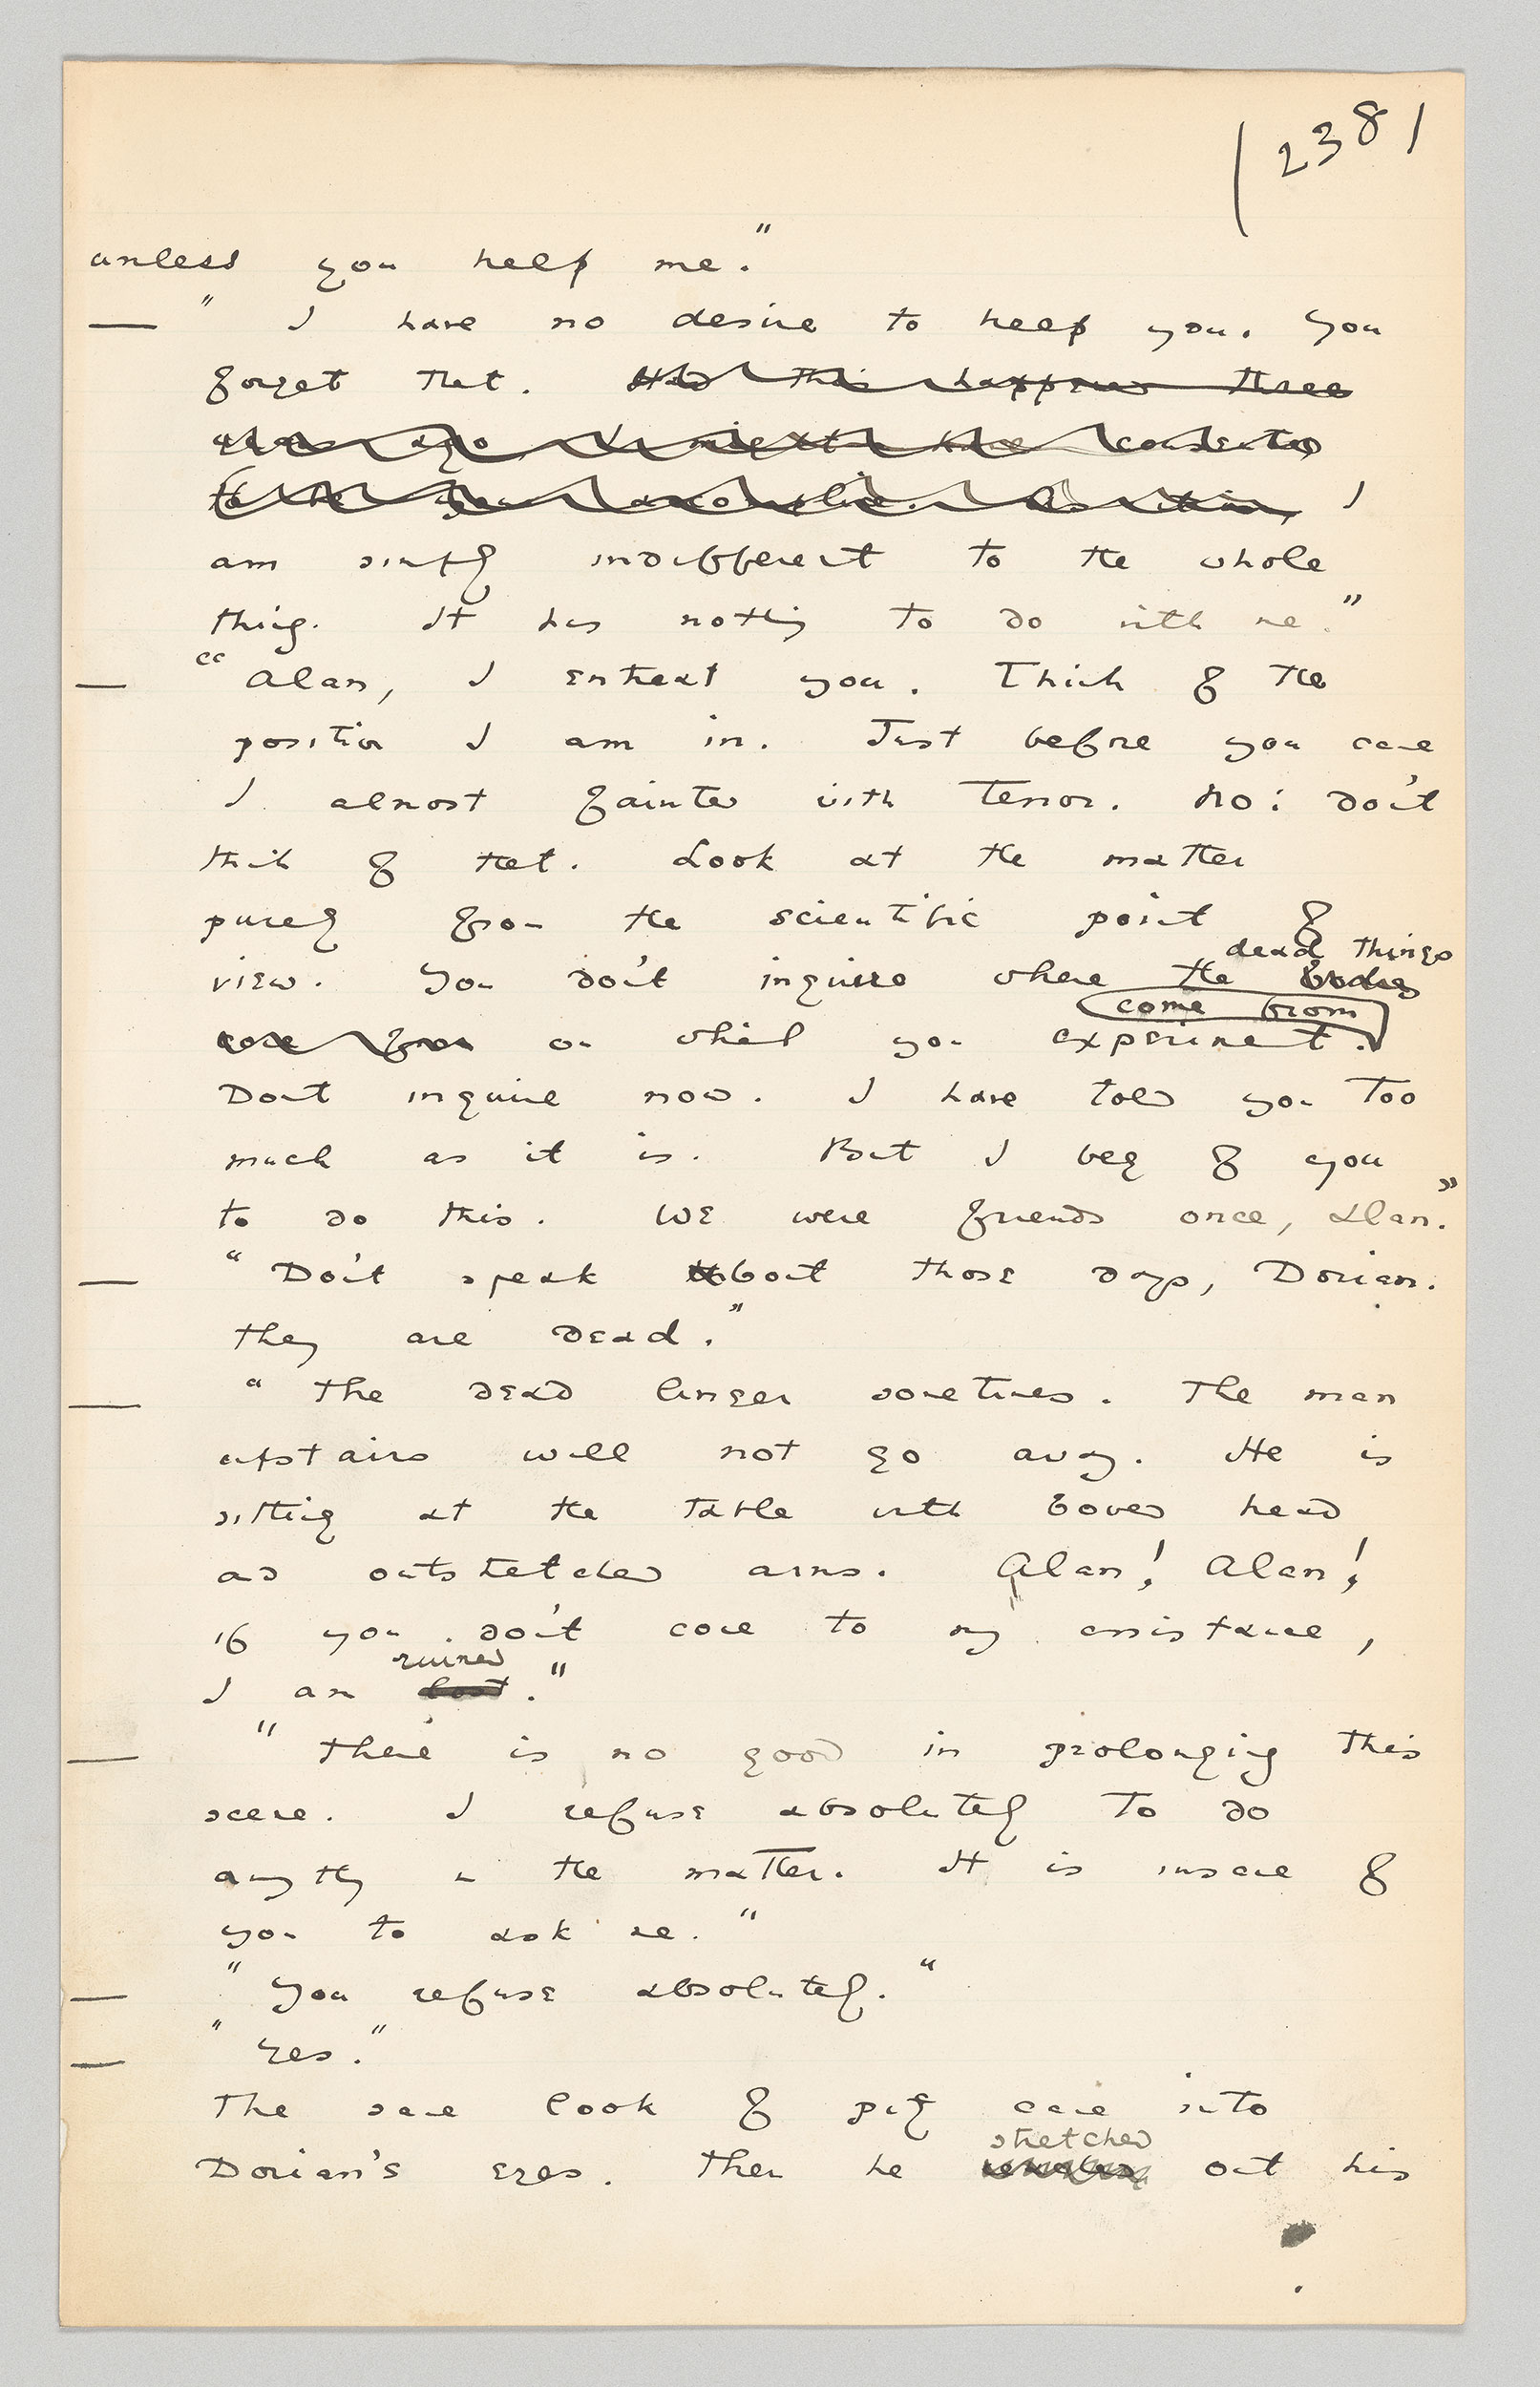 238
unless you help me."
— " I have no desire to help you. You
forget that. Had this happened three
years ago, I might have consented
to be your accomplice. I
am simply indifferent to the whole
thing. It has nothing to do with me."
— "Alan, I entreat you. Think of the
position I am in. Just before you came
I almost fainted with terror. No: don't
think of that. Look at the matter
purely from the scientific point of
dead things
view. You don't inquire where the bodies
come from
come from on which you experiment.
Dont inquire now. I have told you too
much as it is. But I beg of you
to do this. We were friends once, Alan."
— "Don't speak about those days, Dorian.
they are dead."
— "The dead linger sometimes. The man
upstairs will not go away. He is
sitting at the table with bowed head
and outstretched arms. Alan! Alan!
if you don't come to my assistance,
ruined
I am lost."
— "There is no good in prolonging this
scene. I refuse absolutely to do
anything in the matter. It is insane of
you to ask me."
— "You refuse absolutely."
— "Yes."
The same look of pity came into
stretched
Dorian's eyes. Then he out his